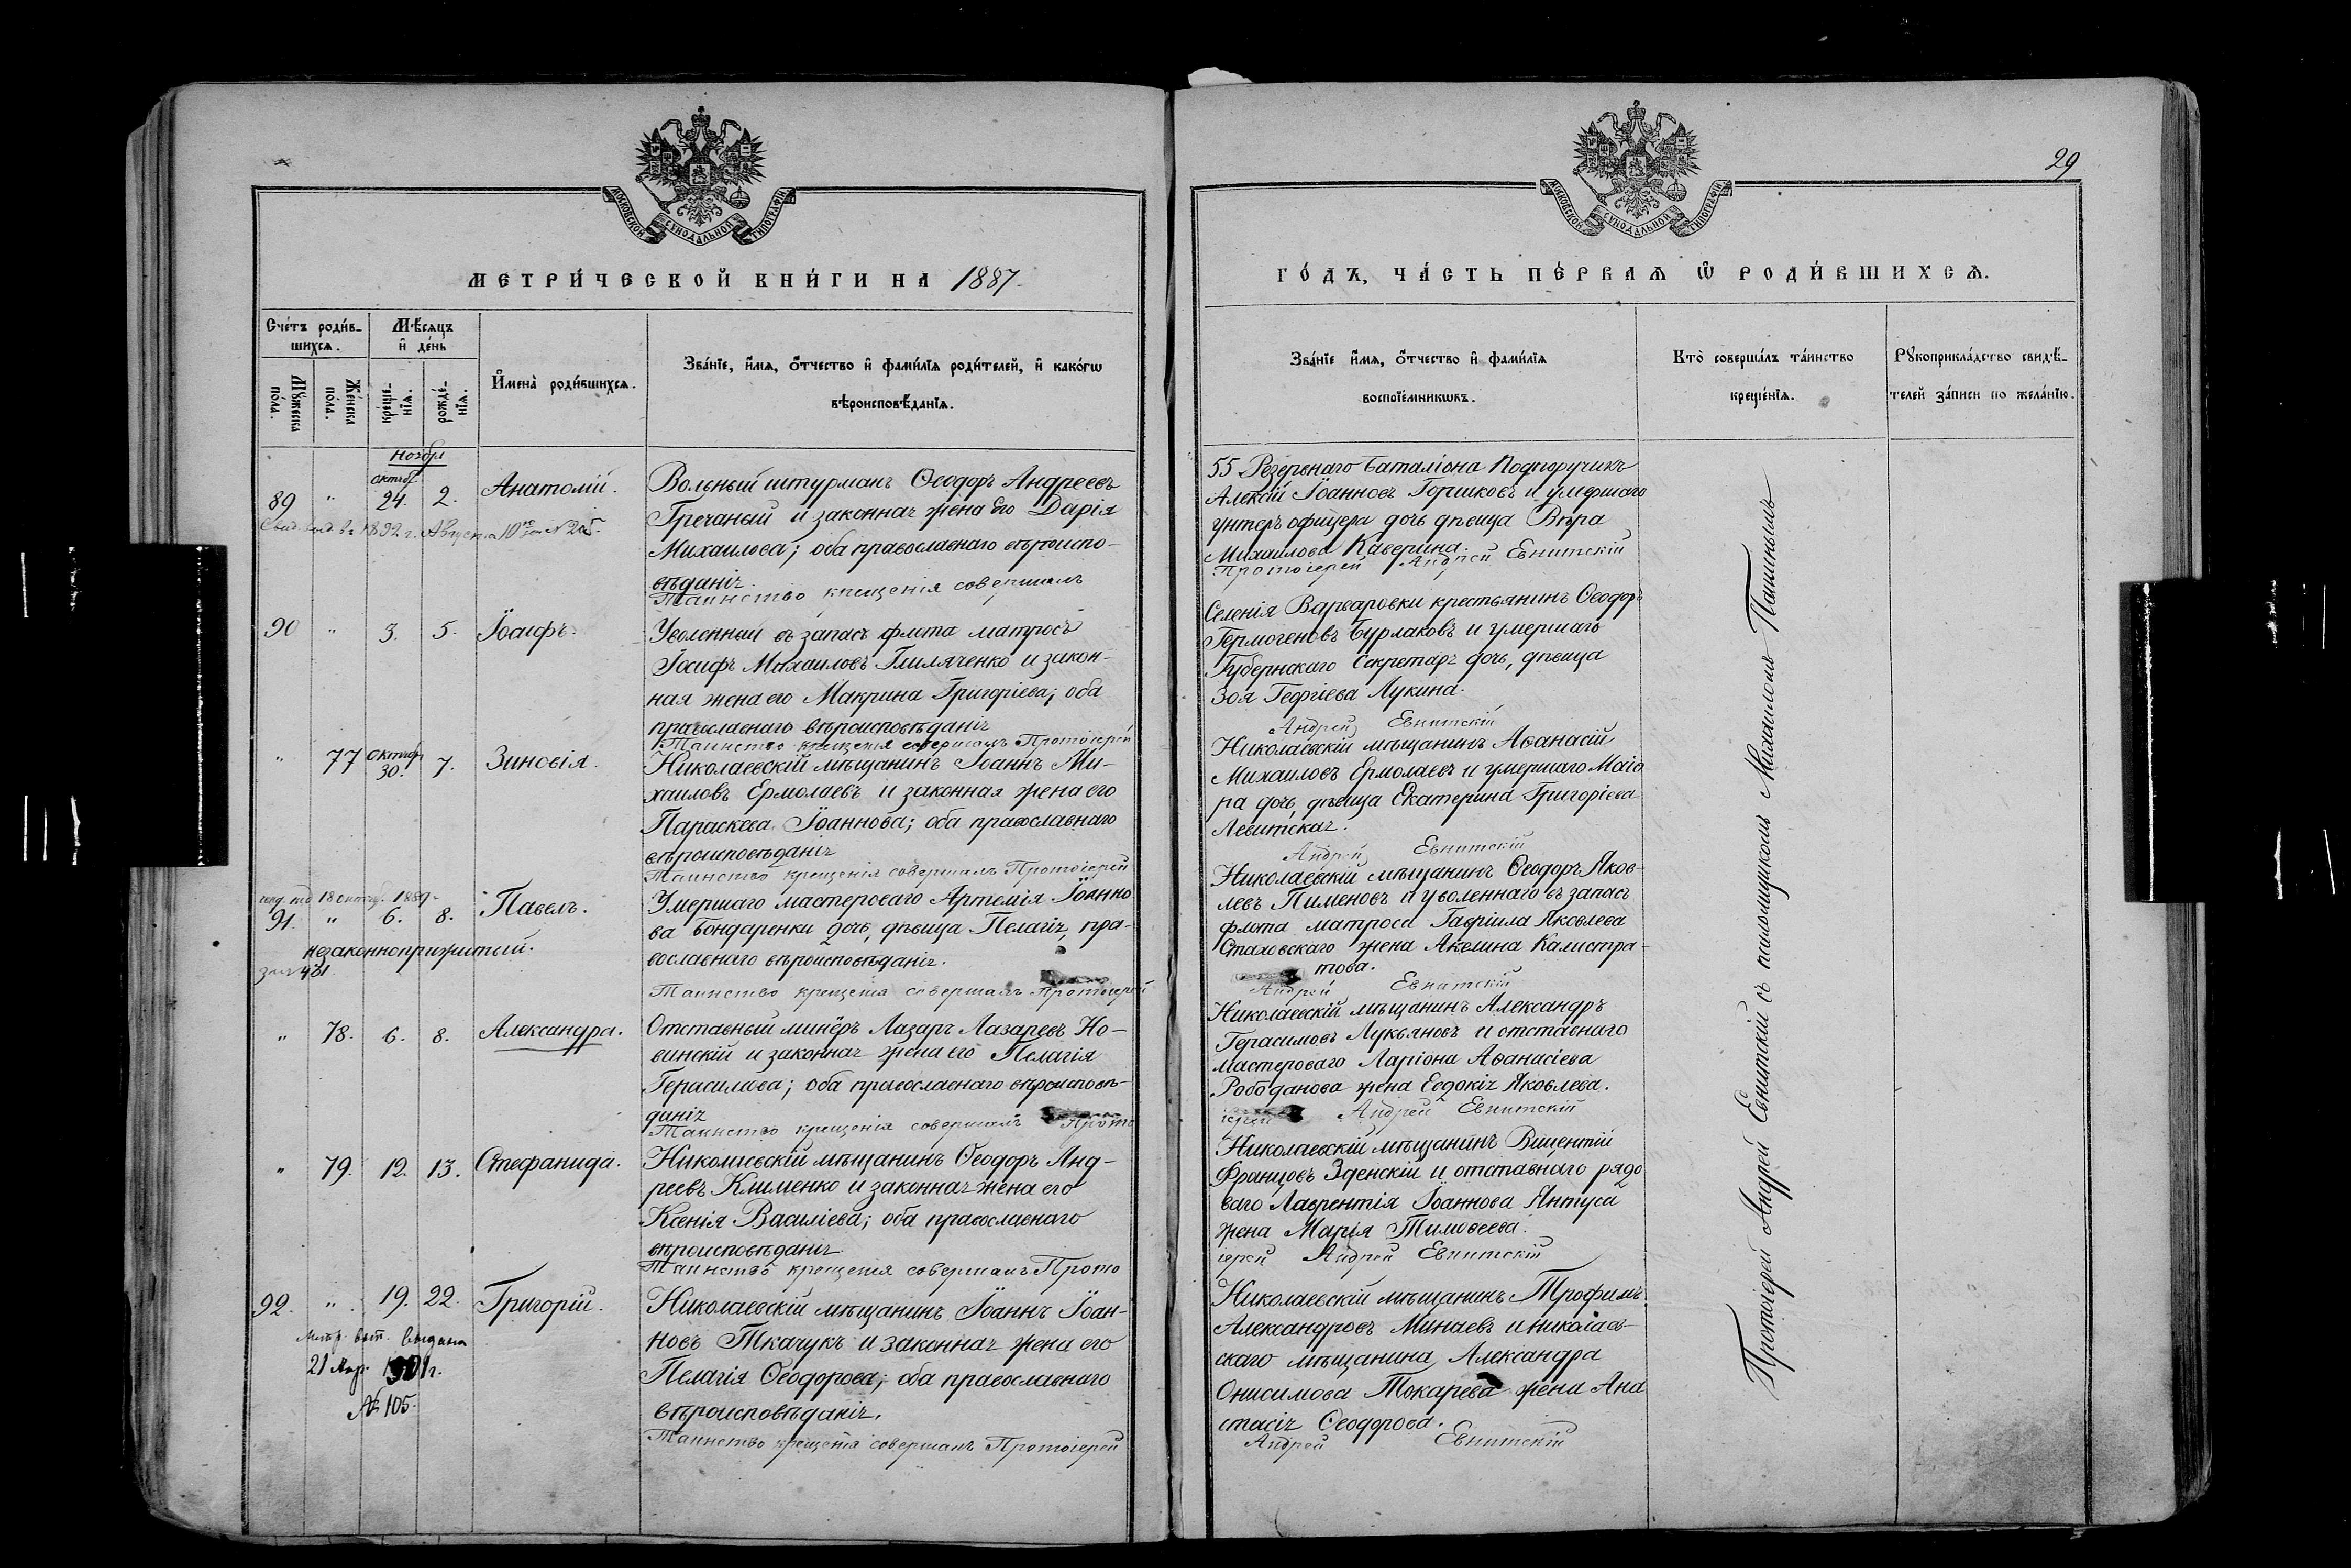 МОСКОВСКОЙ СѴНОДАЛЬНОЙ ТИПОГРАФІИ
МЕТРИ́ЧЕСКОЙ КНИ́ГИ НА 1887.
Сче́тъ роди́в-
шихсѧ.
Мѣ́сѧцъ
и҆ де́нь
Мꙋ́жеска по́ла.
Же́нска по́ла.
креще́-нїѧ.
рожде́-нїѧ.
И҆мена̀ роди́вшихсѧ.
Зва́нїе, и҆́мѧ, ѻ҆́тчество и҆ фами́лїѧ роди́телей, и҆ како́гѡ
вѣроисповѣ́данїѧ.
Ноября
89 " Октяб. 24. 2. Анатолій.
Свид. выд. въ 1892 г. Августа 10 го за № 205.
Вольный штурманъ Ѳеодоръ Андреевъ
Гречаный и законная жена его Дарія
Михаилова; оба православнаго вѣроиспо-
вѣданія.
Таинство крещенія совершалъ
90 " 3. 5. Іосифъ.
Уволенный въ запасъ флота матросъ
Іосифъ Михаиловъ Гмиляченко и закон-
ная жена его Макрина Григоріева; оба
православнаго вѣроисповѣданія
Таинство крещенія совершалъ Протоіерей
" 77 Октяб 30. 7. Зиновія.
Николаевскій мѣщанинъ Іоаннъ Ми-
хаиловъ Ермолаевъ и законная жена его
Параскева Іоаннова; оба православнаго
вѣроисповѣданія
Таинство крещенія совершалъ Протоіерей
18 октяб. 1889 г.
91. " 6. 8. Павелъ.
незаконноприжитый.
Умершаго мастероваго Артемія Іоанно
ва Бондаренки дочь, дѣвица Пелагія, пра-
вославнаго вѣроисповѣданія.
Таинство крещенія совершалъ Протоіерей
" 78. 6. 8. Александра.
Отставный минёръ Лазарь Лазаревъ Но-
винскій и законная жена его Пелагія
Герасимова; оба православнаго вѣроисповѣ-
данія
Таинство крещенія совершалъ Прото
" 79. 12. 13. Стефанида.
Николаевскій мѣщанинъ Ѳеодоръ Анд-
реевъ Клименко и законная жена его
Ксенія Василіева; оба православнаго
вѣроисповѣданія.
Таинство крещенія совершалъ Прото
92. " 19. 22. Григорій.
Метр. вып. выдана
21 Мар. 1901 г.
№ 105.
Николаевскій мѣщанинъ Іоаннъ Іоан-
новъ Ткачукъ и законная жена его
Пелагія Ѳеодорова; оба православнаго
вѣроисповѣданія.
Таинство крещенія совершалъ Протоіерей
МОСКОВСКОЙ СѴНОДАЛЬНОЙ ТИПОГРАФІИ
29
ГО́ДЪ, ЧА́СТЬ ПЕ́РВАѦ Ѡ҆ РОДИ́ВШИХСѦ.
Зва́нїе и҆́мѧ, ѻ҆́тчество и҆ фами́лїѧ
воспрїе́мникѡвъ.
Кто̀ соверша́лъ та́инство
креще́нїѧ.
Рꙋкоприкла́дство свидѣ́-
телей за́писи по жела́нїю.
55 Резервнаго баталіона Подпоручикъ
Алексій Іоанновъ Горшковъ и умершаго
унтеръ офицера дочь дѣвица Вѣра
Михаилова Каверина.
Протоіерей Андрей Евнитскій
Селенія Варваровки крестьянинъ Ѳеодоръ
Гермогеновъ Бурлаковъ и умершаго
Губернскаго Секретаря дочь, дѣвица
Зоя Георгіева Лукина.
Андрей Евнитскій
Николаевскій мѣщанинъ Аѳанасій
Михаиловъ Ермолаевъ и умершаго Маіо
ра дочь, дѣвица Екатерина Григоріева
Левитская.
Андрей Евнитскій
Николаевскій мѣщанинъ Ѳеодоръ Яков-
левъ Пименовъ и уволеннаго въ запасъ
флота матроса Гавріила Яковлева
Стаховскаго жена Акелина Калистра-
това.
Андрей Евнитскій
Николаевскій мѣщанинъ Александръ
Герасимовъ Лукьяновъ и отставнаго
мастероваго Ларіона Аѳанасіева
Рободанова жена Евдокія Яковлева.
іерей Андрей Евнитскій
Николаевскій мѣщанинъ Викентій
Францовъ Зденскій и отставнаго рядо
ваго Лаврентія Іоаннова Янтуса
жена Марія Тимоѳеева.
іерей Андрей Евнитскій
Николаевскій мѣщанинъ Трофимъ
Александровъ Минаевъ и николаев-
скаго мѣщанина Александра
Онисимова Токарева жена Ана
стасія Ѳеодорова.
Андрей Евнитскій
Протоіерей Андрей Евнитскій съ псаломщикомъ Михаиломъ Пашинымъ